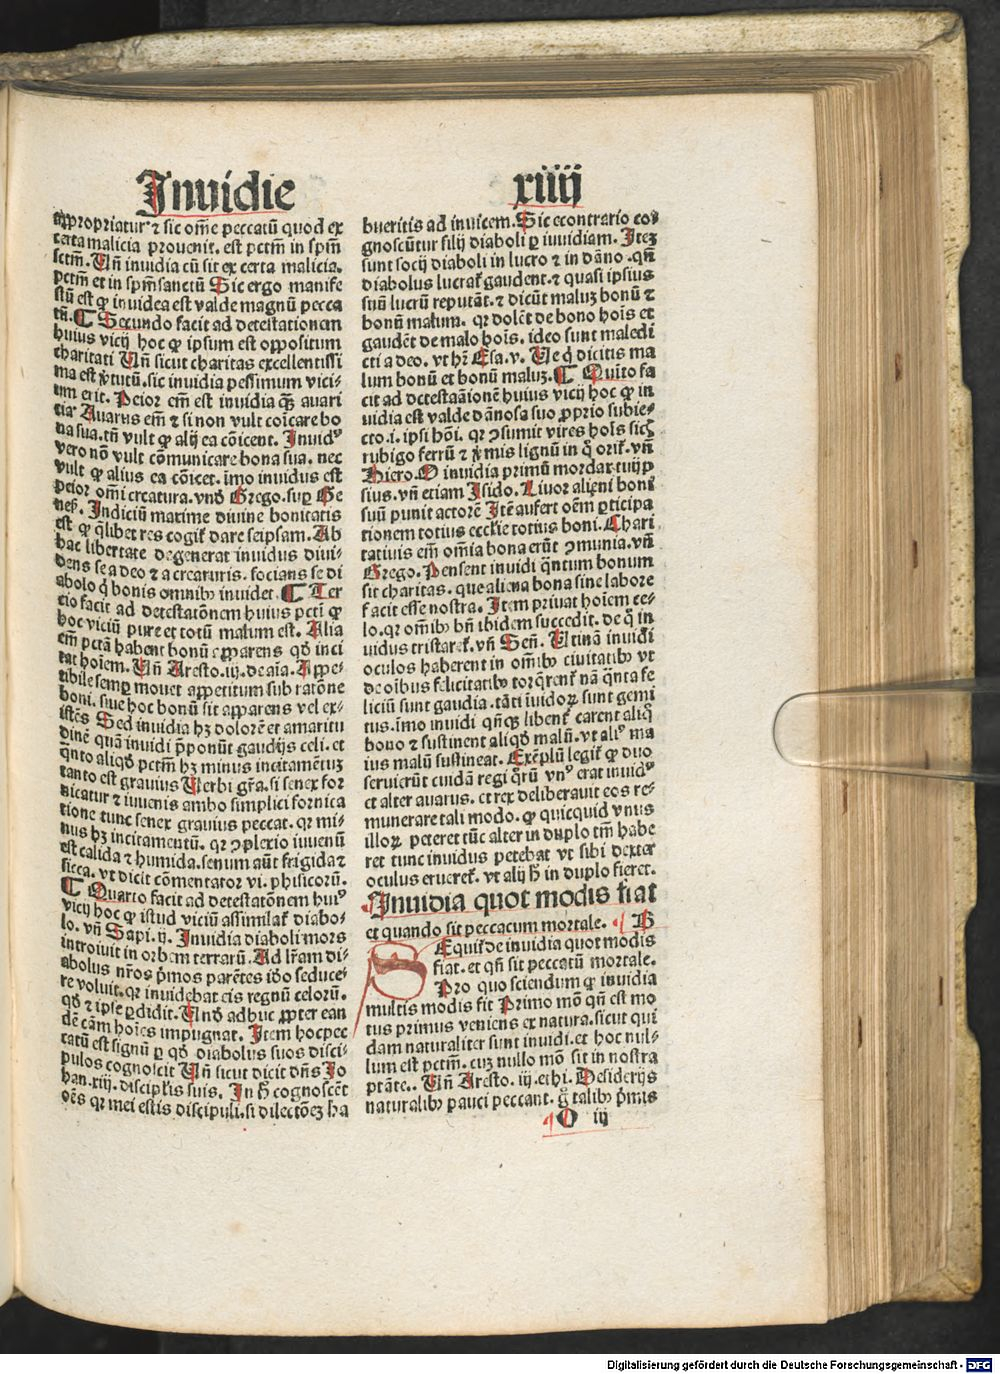 Inuidie
xiiij
appropriatur⁊ sic om̄e peccatū quod ex
certa malicia prouenit. est pctm̄ in spm̄
sctm̄. Un̄ inuidia cū sit ex certa malicia.
pctm̄ et in spm̄sanctū Sic ergo manife
stū est ꝙ inuidea est valde magnū pecca
tū. ¶ Secundo facit ad detestationem
huius vicij hoc ꝙ ipsum est oppositum
charitati Un̄ sicut charitas excellentissi
ma est ꝟtutū. sic inuidia pessimum vici-
um erit. Peior em̄ est inuidia qȝ auari
tia Auarus em̄ ⁊ si non vult cōicare bo
na sua. tn̄ vult ꝙ alij ea cōicent. Inuidꝰ
vero nō vult cōmunicare bona sua. nec
vult ꝙ alius ea cōicet. imo inuidus est
peior om̄i creatura. vnd̄ Grego. suꝑ Ge
nes̄. Indiciū maxime diuine bonitatis
est ꝙ qͥlibet res cogit̄ dare seipsam. Ab
hac libertate degenerat inuidus diui-
dens se a deo ⁊ a creaturis. socians se di
abolo qͥ bonis omnibꝰ inuidet. ¶ Ter
cio facit ad detestatōnem huius pcti ꝙ
hoc viciū pure et totū malum est. Alia
em̄ pctā habent bonū apparens qd̄ inci
tat hoīem. Un̄ Aresto. iij. de aīa. Appe-
tibile semꝑ mouet appetitum sub ratōne
boni. siue hoc bonū sit apparens vel ex-
istēs Sed inuidia hȝ dolorē et amaritu
dinē quā inuidi p̄ponūt gaudijs celi. et
qͣnto aliqd̄ pctm̄ hȝ minus incitamētuȝ
tanto est grauius Uerbi gr̄a. si senex for
nicatur ⁊ iuuenis ambo simplici fornica
tione tunc senex grauius peccat. qꝛ mi-
nus hȝ incitamentū. qꝛ ꝯplexio iuuenū
est calida ⁊ humida. senum aūt frigida ⁊
sicca. vt dicit cōmentator vi. phisicorū.
¶ Quarto facit ad detestatōnem huiꝰ
vicij hoc ꝙ istud viciū assimilat̄ diabo-
lo. vn̄ Sapi. ij. Inuidia diaboli mors
introiuit in orbem terrarū. Ad lr̄am di-
abolus nr̄os p̄mos parētes iō seduce-
re voluit. qꝛ inuidebat eis regnū celorū.
qd̄ ⁊ ipse ꝑdidit. Und̄ adhuc ꝓpter ean
dē cām hoīes impugnat. Item hocpec
catū est signū ꝑ qd̄ diabolus suos disci-
pulos cognoscit Un̄ sicut dicit dn̄s Jo
han. xiij. discipl̄is suis. In h̄ cognoscēt
oēs qꝛ mei estis discipuli. si dilectōeȝ ha
bueritis ad inuicem. Sic econtrario co-
gnoscūtur filij diaboli ꝑ iuuidiam. Iteȝ
sunt socij diaboli in lucro ⁊ in dāno. qn̄
diabolus lucrat̄ gaudent. ⁊ quasi ipsius
suū lucrū reputāt. ⁊ dicūt maluȝ bonū ⁊
bonū malum. qꝛ dolēt de bono hoīs et
gaudēt de malo hoīs. ideo sunt maledi
cti a deo. vt hr̄ Esa. v. Ue qͥ dicitis ma
lum bonū et bonū maluȝ. ¶ Quīto fa
cit ad detestaāionē huius vicij hoc ꝙ in
uidia est valde dānosa suo ꝓprio subie-
cto. i. ipsi hōi. qꝛ ꝯsumit vires hoīs sic
rubigo ferrū ⁊ ꝟmis lignū in qͦ orit̄. vn̄
Hiero. O inuidia primū mordax tuijp
sius. vn̄ etiam Isido. Liuor alieni boni
suū punit actorē Itē aufert oēm ꝑticipa
tionem totius eccl̄ie totius boni. Chari
tatiuis em̄ om̄ia bona erūt ꝯmunia. vn̄
Grego. Pensent inuidi qͣntum bonum
sit charitas. que aliena bona sine labore
facit esse nostra. Item priuat hoīem ce-
lo. qꝛ om̄ibꝰ bn̄ ibidem succedit. de qͦ in
uidus tristaret̄. vn̄ Sen̄. Utinā inuidi
oculos haberent in om̄ibꝰ ciuitatibꝰ vt
de oībus felicitatibꝰ torqͣrent̄ nā qͣnta fe
liciū sunt gaudia. tāti īuidoꝝ sunt gemi
tus. imo inuidi qn̄qȝ libent̄ carent aliqͦ
bono ⁊ sustinent aliqd̄ malū. vt aliꝰ ma
ius malū sustineat. Exēplū legit̄ ꝙ duo
seruierūt cuidā regi qͦrū vnꝰ erat inuidꝰ
et alter auarus. et rex deliberauit eos re-
munerare tali modo. ꝙ quicquid vnus
illoꝝ peteret tūc alter in duplo tm̄ habe
ret tunc inuidus petebat vt sibi dexter
oculus erueret̄. vt alij h̄ in duplo fieret.
Inuidia quot modis fiat
et quando sit peccatum mortale. ¶ B
Equit̄ de inuidia quot modis
fiat. et qn̄ sit peccatū mortale.
Pro quo sciendum ꝙ inuidia
multis modis fit Primo mō qn̄ est mo
tus primus veniens ex natura. sicut qui
dam naturaliter sunt inuidi. et hoc nul-
lum est pctm̄. cuȝ nullo mō sit in nostra
ptāte. Un̄ Aresto. iij. ethi. Desiderijs
naturalibꝰ pauci peccant. gͦ talibꝰ p̄mis
O iij
Digitalisierung gefördert durch die Deutsche Forschungsgemeinschaft - DFG